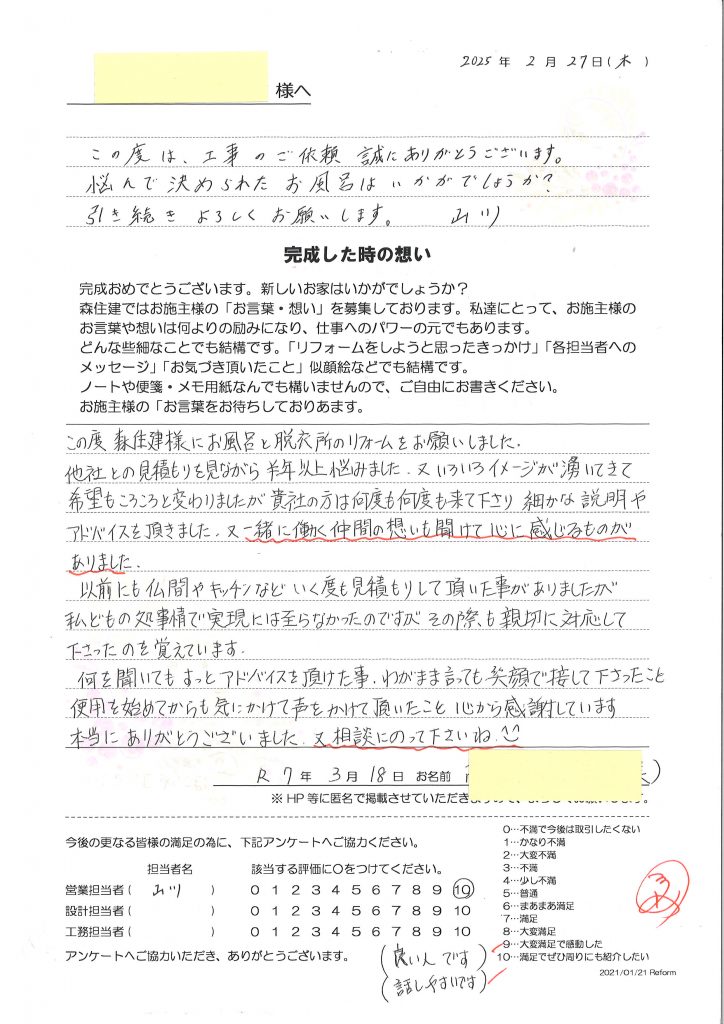 2025 年 2 月 27日(木)
様へ
この度は、工事のご依頼 誠にありがとうございます。
悩んで決められたお風呂はいかがでしょうか?
引き続きよろしくお願いします。 山川
完成した時の想い
完成おめでとうございます。新しいお家はいかがでしょうか？
森住建ではお施主様の「お言葉・想い」を募集しております。私達にとって、お施主様の
お言葉や想いは何よりの励みになり、仕事へのパワーの元でもあります。
どんな些細なことでも結構です。「リフォームをしようと思ったきっかけ」「各担当者への
メッセージ」「お気づき頂いたこと」似顔絵などでも結構です。
ノートや便箋・メモ用紙なんでも構いませんので、ご自由にお書きください。
お施主様の「お言葉をお待ちしておりあます。
この度 森住建様にお風呂と脱衣所のリフォームをお願いしました.
他社との見積もりを見ながら半年以上悩みました. 又いろいろイメージが湧いてきて
希望もころころと変わりましたが貴社の方は何度も何度も来て下さり 細かな説明や
アドバイスを頂きました. 又一緒に働く仲間の想いも聞けて心に感じるものが
ありました.
以前にも仏間やキッチンなど いく度も見積もりして頂いた事がありましたが
私どもの処事情で実現には至らなかったのですが その際も親切に対応して
下さったのを覚えています.
何を聞いてもすっとアドバイスを頂けた事. わがまま言っても笑顔で接して下さったこと
使用を始めてからも気にかけて声をかけて頂いたこと 心から感謝しています
本当に ありがとうございました. 又相談にのって下さいね.
R 7 年 3 月 18 日 お名前
※HP 等に匿名で掲載させていただきますので、
今後の更なる皆様の満足の為に、下記アンケートへご協力ください。
担当者名 該当する評価に○をつけてください。
営業担当者( 山川 ) 0 1 2 3 4 5 6 7 8 9 10
設計担当者( ) 0 1 2 3 4 5 6 7 8 9 10
工務担当者( ) 0 1 2 3 4 5 6 7 8 9 10
アンケートへご協力いただき、ありがとうございます。
(良い人です)
(話しやすいです)
0…不満で今後は取引したくない
1…かなり不満
2…大変不満
3…不満
4…少し不満
5…普通
6…まあまあ満足
7…満足
8…大変満足
9…大変満足で感動した
10…満足でぜひ周りにも紹介したい
2021/01/21 Reform